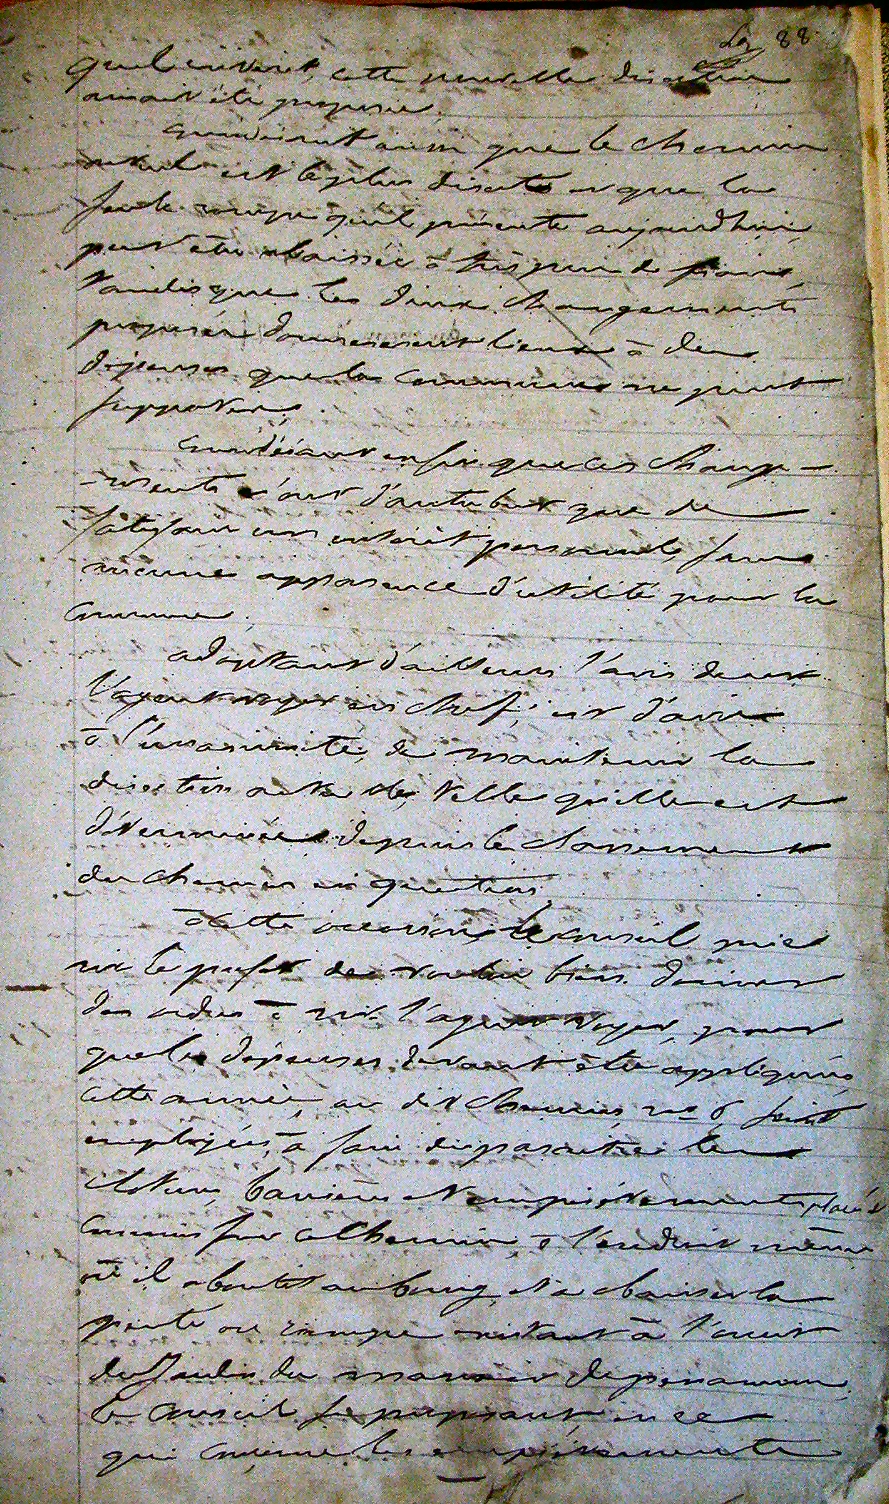 88
qu'il cette nouvelle direction
ayant été proposée.
Considérant aussi que le chemin
actuel est le plus direct et que la
seule rampe qu'il présente aujourd'hui,
peut être abaissée à très peu de frais,
tandis que les deux changements
proposés donneraient lieux à des
dépenses que les communes ne peut
supporter.
Considérant enfin que ces change-
-ments n'ont d'autre but que de
satisfaire un intérêt personnel, sans
aucune apparence d'utilité pour la
commune.
adoptant d'ailleurs l'avis de
l'agent voyer en chef, est d'avis
à l'unanimité, de maintenir la
direction actuelle telle qu'elle est
déterminée depuis le classement
du chemin en question.
à cette occasion, le conseil prie
mr le préfet de vouloir bien donner
des ordres à mr l'agent voyer, pour
que les dépenses devant être appliquées
cette année, au dit chemin no 6, soient
employées, à faire disparaître les
clotures, barrières et empiètements placés
commis sur ce chemin, à l'endroit même
où il aboutit au bourg, et à abaisser la
pente ou rampe existant à l'ouest
du Jardin du manoir de
le conseil se proposant, en ce
qui concerne les empiètements